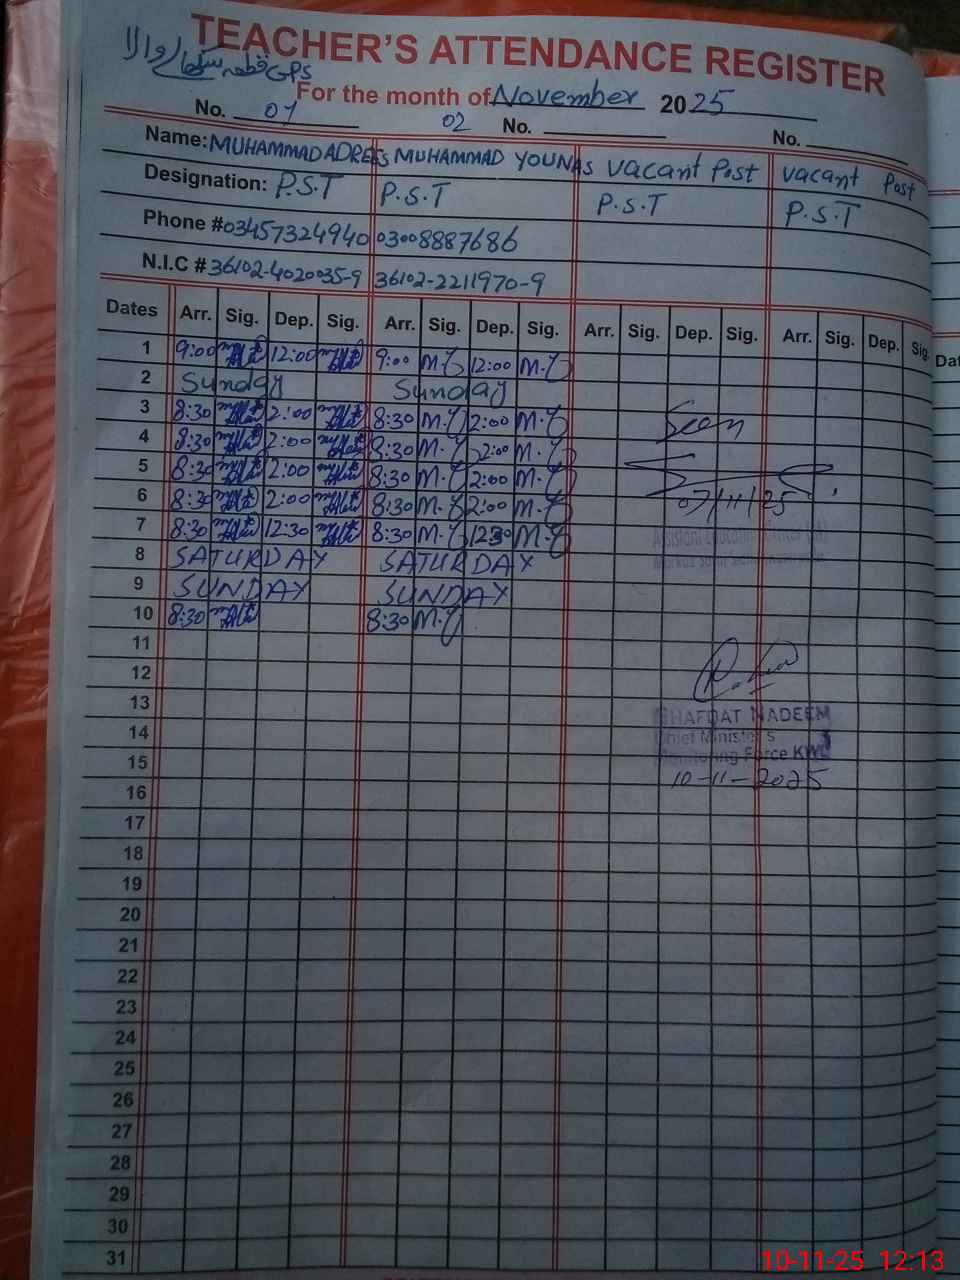 TEACHER'S ATTENDANCE REGISTER
GPS قطعہ سنگھانے والا
For the month of November 2025
No. 01 02 No. No.
Name: MUHAMMAD ADREES MUHAMMAD YOUNAS Vacant Post Vacant Post
Designation: P.S.T P.S.T P.S.T P.S.T
Phone # 03457324940 03008887686
N.I.C # 36102-4020035-9 36102-2211970-9
Dates Arr. Sig. Dep. Sig. Arr. Sig. Dep. Sig. Arr. Sig. Dep. Sig. Arr. Sig. Dep. Sig.
1 9:00 12:00 9:00 M.Y 12:00 M.Y
2 Sunday Sunday
3 8:30 2:00 8:30 M.Y 2:00 M.Y
Seen
4 8:30 2:00 8:30 M.Y 2:00 M.Y
5 8:30 2:00 8:30 M.Y 2:00 M.Y
6 8:30 2:00 8:30 M.Y 2:00 M.Y
07/11/25
7 8:30 12:30 8:30 M.Y 12:30 M.Y
8 SATURDAY SATURDAY
9 SUNDAY SUNDAY
10 8:30 8:30 M.Y
11
12
13
GHAFOAT NADEEM
14
Chief Minister's
15
Monitoring Force KWL
10-11-2025
16
17
18
19
20
21
22
23
24
25
26
27
28
29
30
31
Dat
10-11-25 12:13